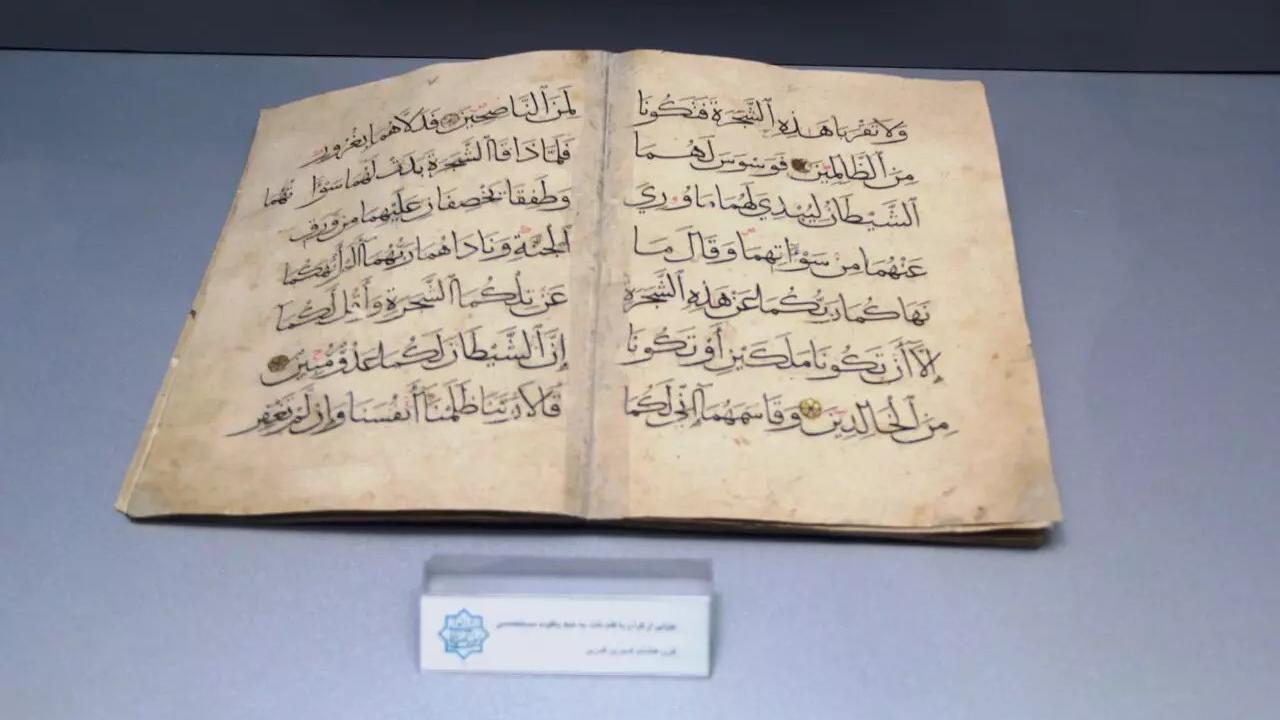 وَلَا تَقْرَبَا هَٰذِهِ ٱلشَّجَرَةَ فَتَكُونَا
مِنَ ٱلظَّالِمِينَ فَوَسْوَسَ لَهُمَا
ٱلشَّيْطَانُ لِيُبْدِيَ لَهُمَا مَا وُورِيَ
عَنْهُمَا مِن سَوْآتِهِمَا وَقَالَ مَا
نَهَاكُمَا رَبُّكُمَا عَنْ هَٰذِهِ ٱلشَّجَرَةِ
إِلَّا أَن تَكُونَا مَلَكَيْنِ أَوْ تَكُونَا
مِنَ ٱلْخَالِدِينَ وَقَاسَمَهُمَا إِنِّي لَكُمَا
لَمِنَ ٱلنَّاصِحِينَ فَدَلَّاهُمَا بِغُرُورٍ
فَلَمَّا ذَاقَا ٱلشَّجَرَةَ بَدَتْ لَهُمَا سَوْآتُهُمَا
وَطَفِقَا يَخْصِفَانِ عَلَيْهِمَا مِن وَرَقِ
ٱلْجَنَّةِ وَنَادَاهُمَا رَبُّهُمَا أَلَمْ أَنْهَكُمَا
عَن تِلْكُمَا ٱلشَّجَرَةِ وَأَقُل لَكُمَا
إِنَّ ٱلشَّيْطَانَ لَكُمَا عَدُوٌّ مُّبِينٌ
قَالَا رَبَّنَا ظَلَمْنَا أَنفُسَنَا وَإِن لَمْ تَغْفِرْ
قرآن با قلم ثلث به شیوه یاقوت مستعصمی
قرن هشتم هجری قمری